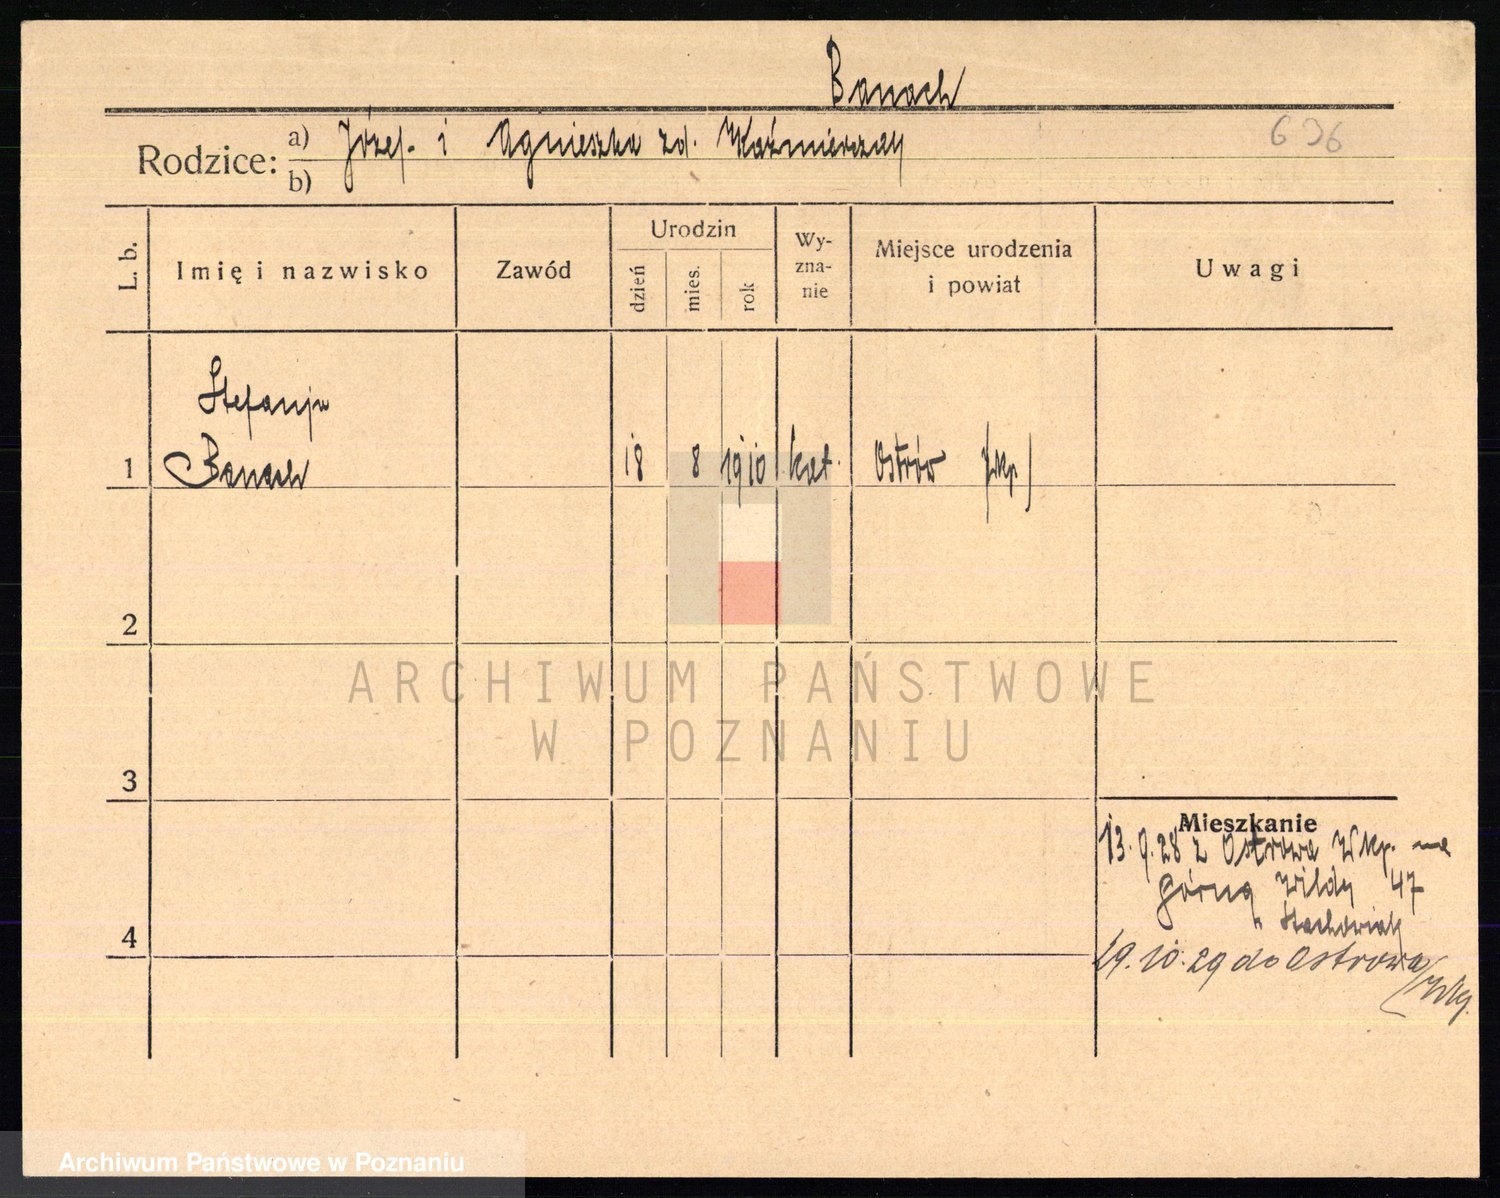 Banach
Rodzice: a) Józef i Agnieszka zd. Kaźmierczak
b)
636
L. b.
Imię i nazwisko
Zawód
Urodzin
dzień
mies.
rok
Wy-
zna-
nie
Miejsce urodzenia
i powiat
Uwagi
Stefanja
1 Banach 18 8 1910 kat. Ostrów Wkp.
2
ARCHIWUM PAŃSTWOWE
W POZNANIU
3
Mieszkanie
13.9.28 z Ostrowa Wkp. na
Górną Wildę 47
Stachowiak
4
29.10.29 do Ostrowa
Wlkp.
Archiwum Państwowe w Poznaniu